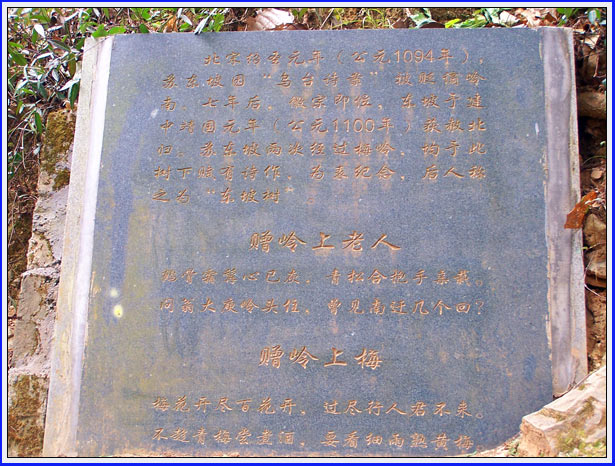 北宋绍圣元年（公元1094年），
苏东坡因“乌台诗案”被贬谪岭
南，七年后，徽宗即位，东坡于建
中靖国元年（公元1100年）获赦北
归。苏东坡两次经过梅岭，均于此
树下赋有诗作，为表纪念，后人称
之为“东坡树
赠岭上老人
鹤骨霜髯心已灰，青松合抱手亲栽。
问翁大庾岭头住，曾见南迁几个回？
赠岭上梅
梅花开尽百花开，过尽行人君不来。
不趁青梅尝煮酒，要看细雨熟黄梅